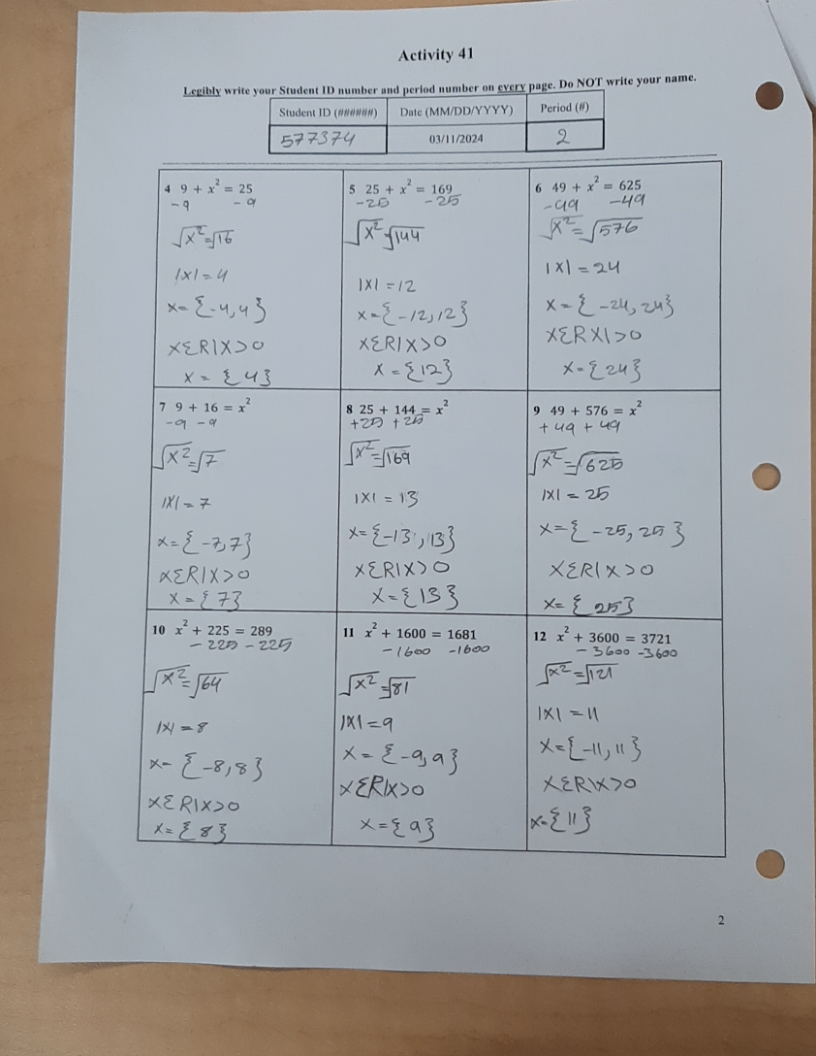 Activity 41
Legibly write your Student ID number and period number on every page. Do NOT write your name.
Student ID (######) Date (MM/DD/YYYY) Period (#)
577374 03/11/2024 2
4 9 + x² = 25
-9 -9
√x² = √16
|x| = 4
x = {-4, 4}
xƐR|x>0
x = {4}
5 25 + x² = 169
-25 -25
√x² = √144
|x| = 12
x = {-12, 12}
xƐR|x>0
x = {12}
6 49 + x² = 625
-49 -49
√x² = √576
|x| = 24
x = {-24, 24}
xƐRX|>0
x = {24}
7 9 + 16 = x²
-9 -9
√x² = √7
|x| = 7
x = {-7, 7}
xƐR|x>0
x = {7}
8 25 + 144 = x²
+25 +25
√x² = √169
|x| = 13
x = {-13, 13}
xƐR|x>0
x = {13}
9 49 + 576 = x²
+49 +49
√x² = √625
|x| = 25
x = {-25, 25}
xƐR|x>0
x = {25}
10 x² + 225 = 289
-225 -225
√x² = √64
|x| = 8
x = {-8, 8}
xƐR|x>0
x = {8}
11 x² + 1600 = 1681
-1600 -1600
√x² = √81
|x| = 9
x = {-9, 9}
xƐR|x>0
x = {9}
12 x² + 3600 = 3721
-3600 -3600
√x² = √121
|x| = 11
x = {-11, 11}
xƐR|x>0
x = {11}
2